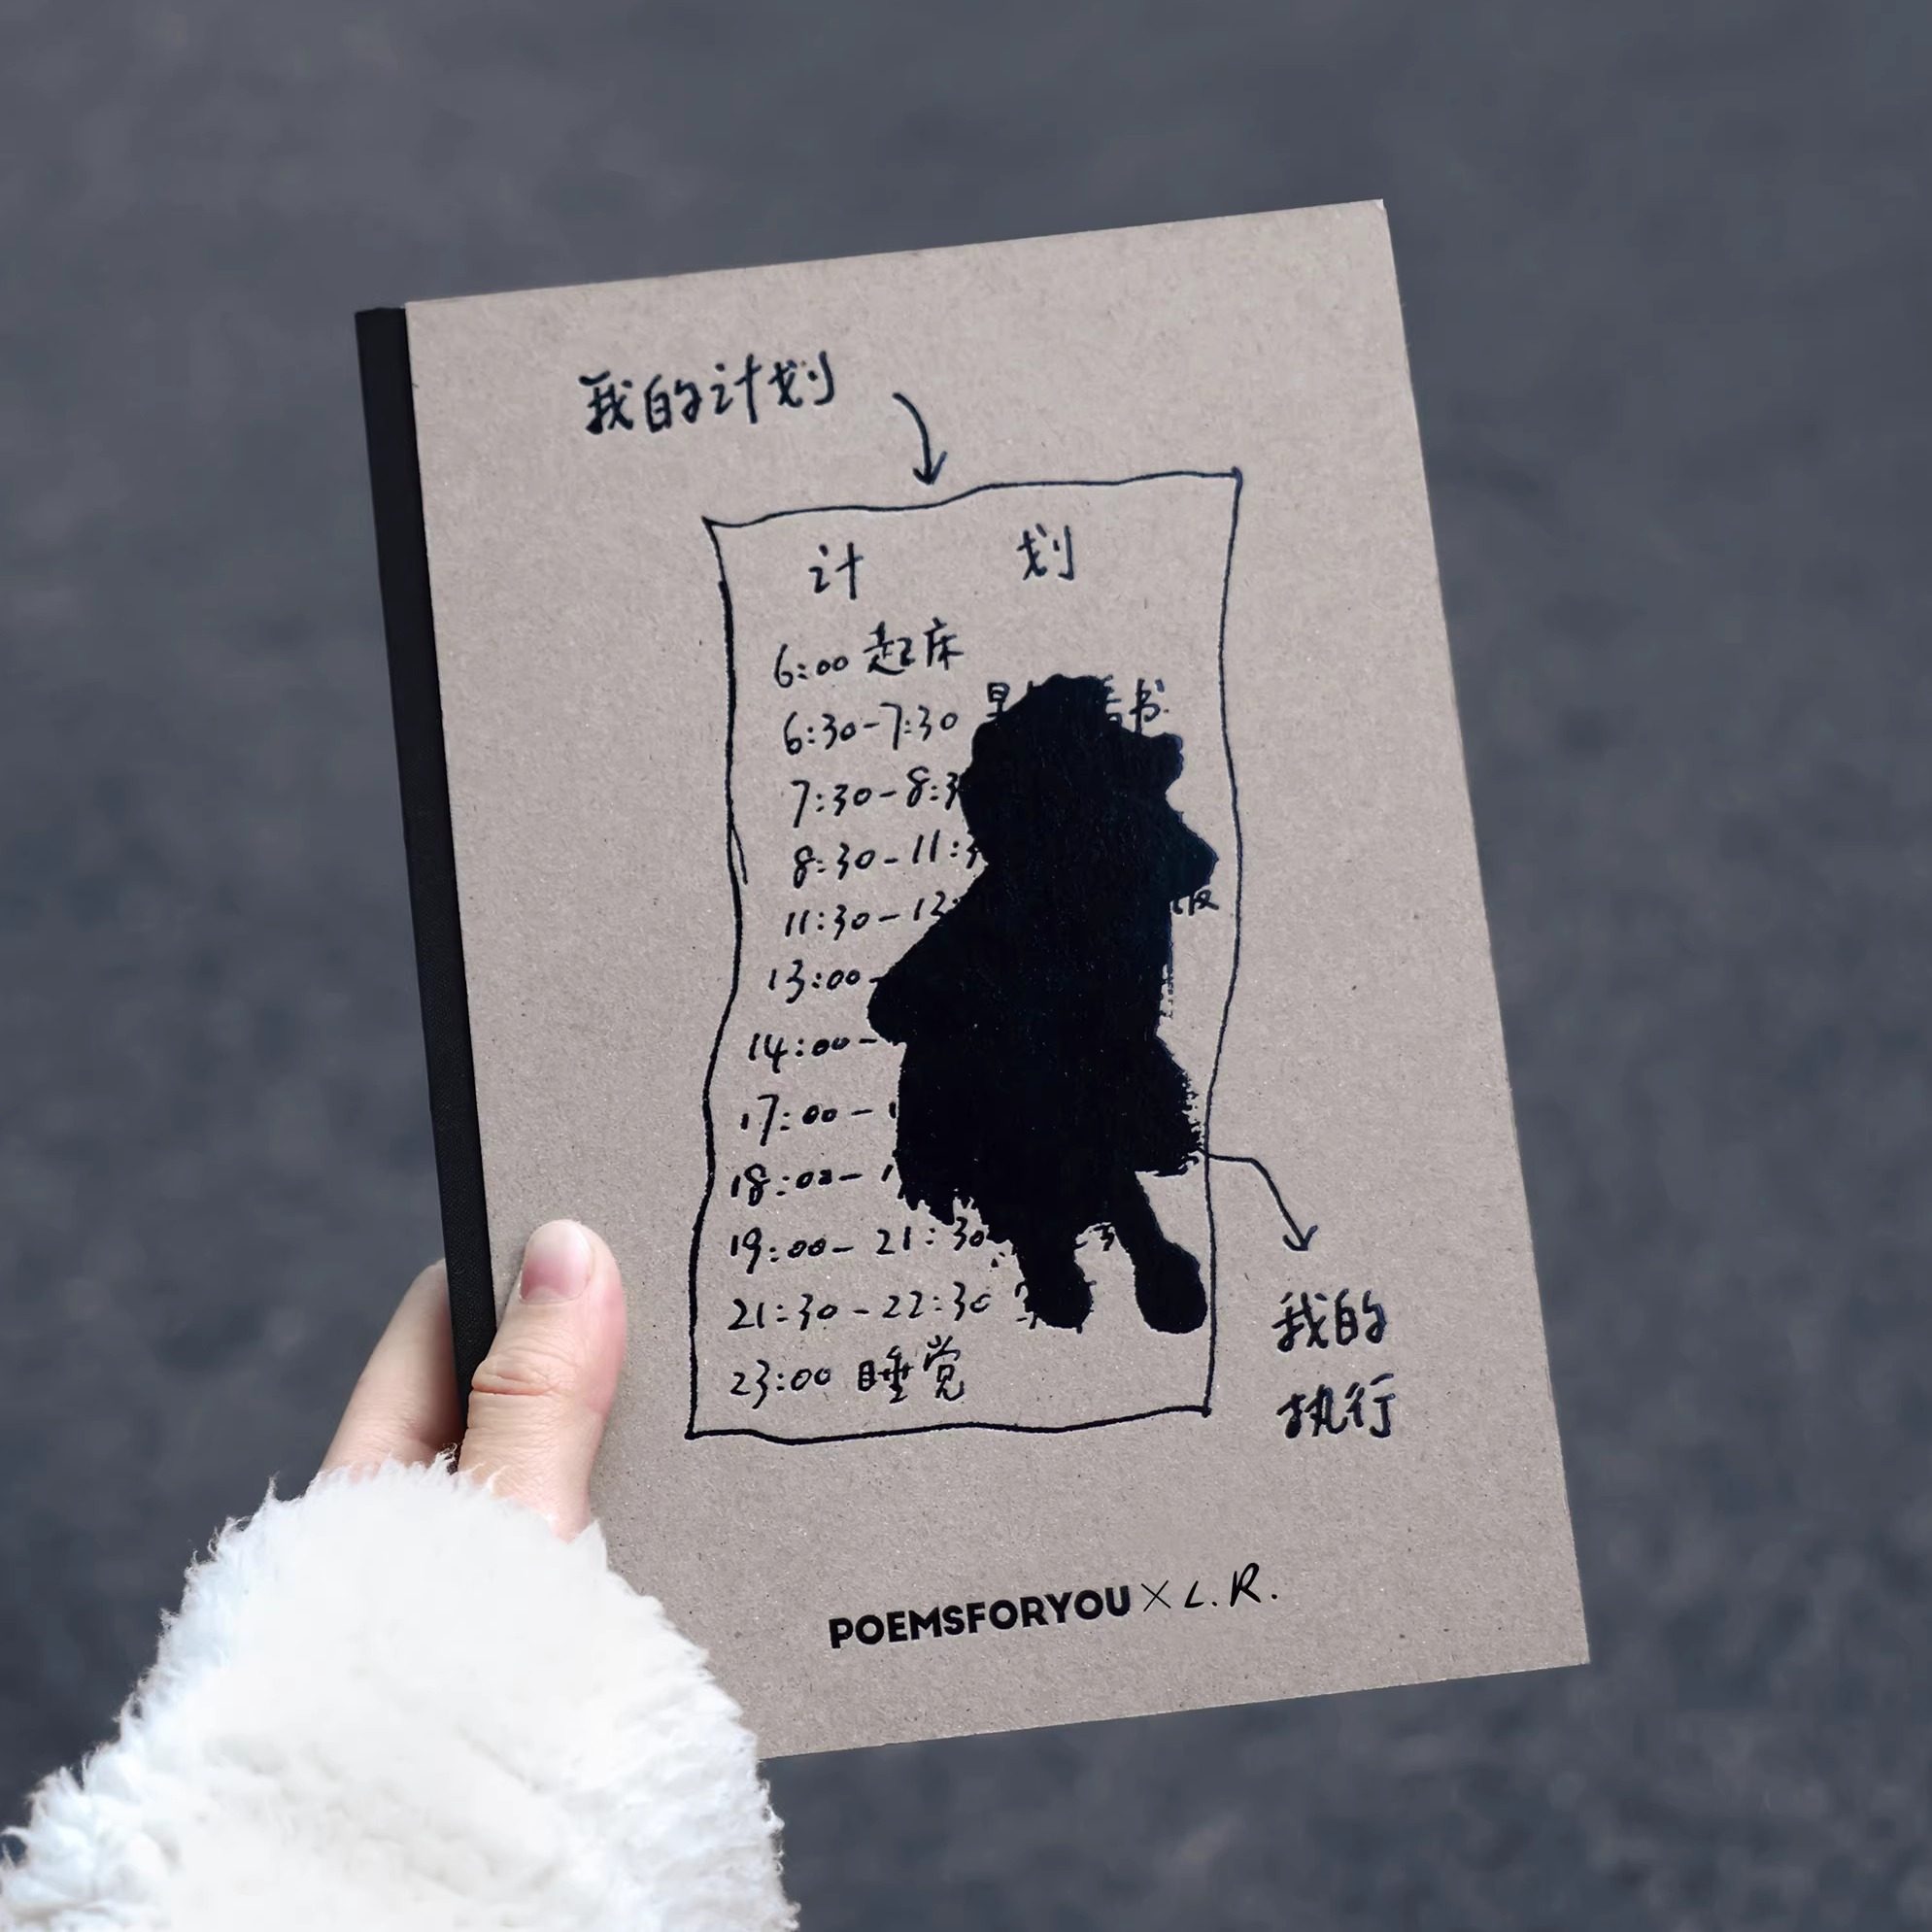 我的计划
计 划
6:00 起床
6:30-7:30 早 看书
7:30-8:3
8:30-11:3
11:30-12: 饭
13:00-
14:00-
17:00-1
18:00-1
19:00-21:30
21:30-22:30
23:00 睡觉
我的
执行
POEMSFORYOU × L.R.